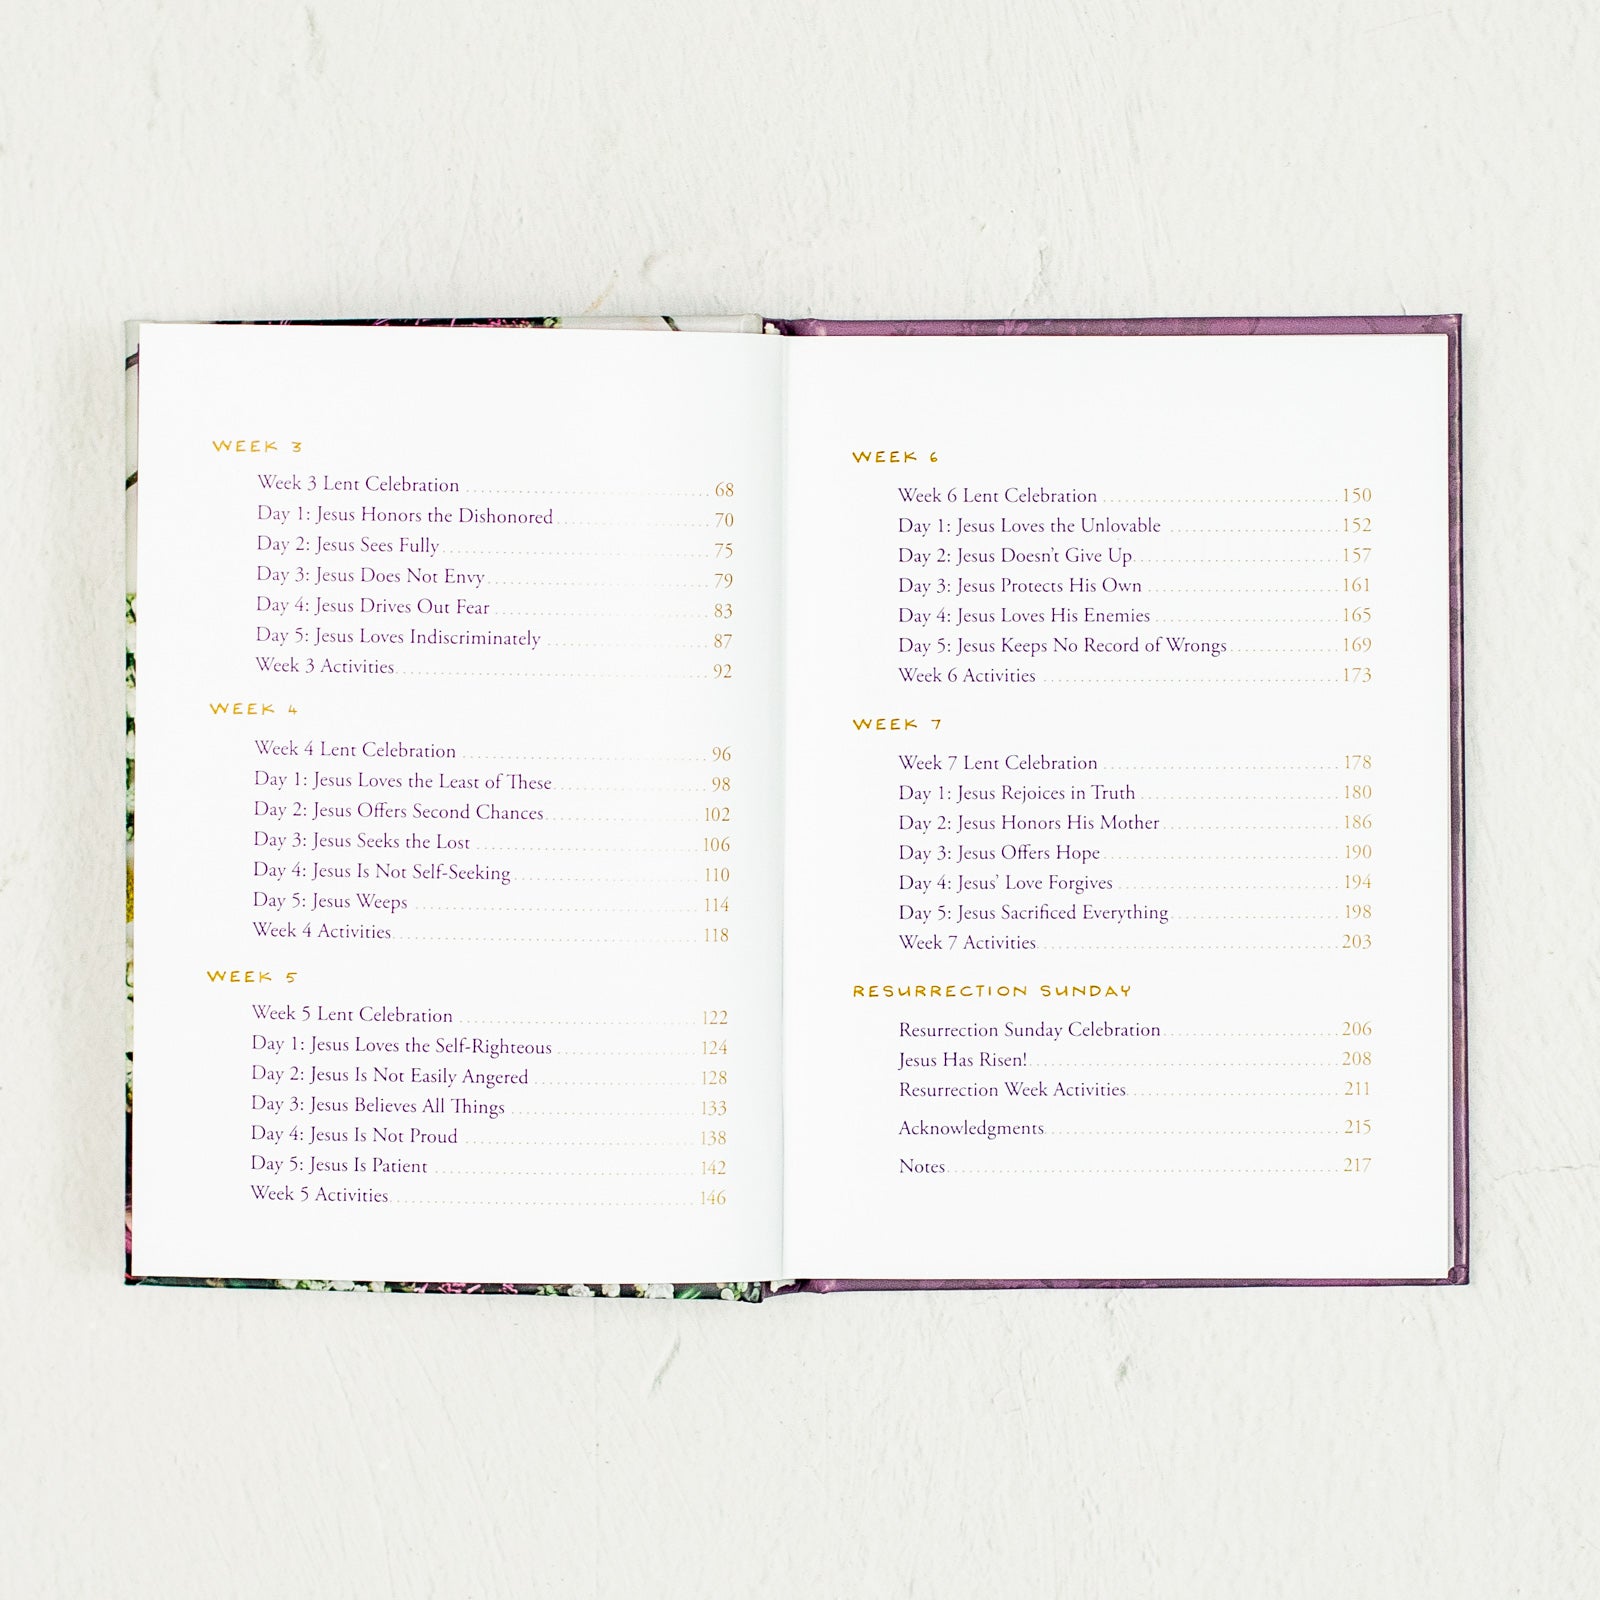 WEEK 3
Week 3 Lent Celebration 68
Day 1: Jesus Honors the Dishonored 70
Day 2: Jesus Sees Fully 75
Day 3: Jesus Does Not Envy 79
Day 4: Jesus Drives Out Fear 83
Day 5: Jesus Loves Indiscriminately 87
Week 3 Activities 92
WEEK 4
Week 4 Lent Celebration 96
Day 1: Jesus Loves the Least of These 98
Day 2: Jesus Offers Second Chances 102
Day 3: Jesus Seeks the Lost 106
Day 4: Jesus Is Not Self-Seeking 110
Day 5: Jesus Weeps 114
Week 4 Activities 118
WEEK 5
Week 5 Lent Celebration 122
Day 1: Jesus Loves the Self-Righteous 124
Day 2: Jesus Is Not Easily Angered 128
Day 3: Jesus Believes All Things 133
Day 4: Jesus Is Not Proud 138
Day 5: Jesus Is Patient 142
Week 5 Activities 146
WEEK 6
Week 6 Lent Celebration 150
Day 1: Jesus Loves the Unlovable 152
Day 2: Jesus Doesn't Give Up 157
Day 3: Jesus Protects His Own 161
Day 4: Jesus Loves His Enemies 165
Day 5: Jesus Keeps No Record of Wrongs 169
Week 6 Activities 173
WEEK 7
Week 7 Lent Celebration 178
Day 1: Jesus Rejoices in Truth 180
Day 2: Jesus Honors His Mother 186
Day 3: Jesus Offers Hope 190
Day 4: Jesus' Love Forgives 194
Day 5: Jesus Sacrificed Everything 198
Week 7 Activities 203
RESURRECTION SUNDAY
Resurrection Sunday Celebration 206
Jesus Has Risen! 208
Resurrection Week Activities 211
Acknowledgments 215
Notes 217